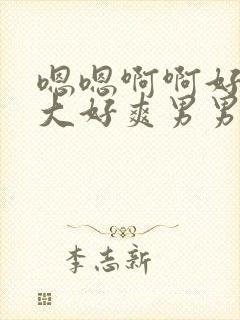 嗯嗯啊啊好
大好爽男男
李志新